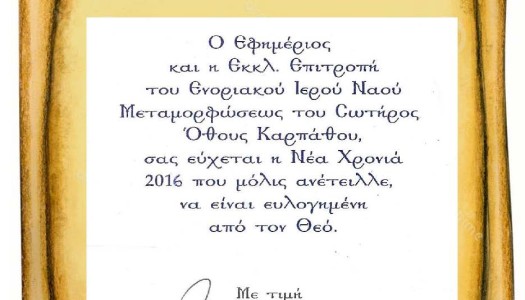 Ο Εφημέριος
και η Εκκλ. Επιτροπή
του Ενοριακού Ιερού Ναού
Μεταμορφώσεως του Σωτήρος
Όθους Καρπάθου,
σας εύχεται η Νέα Χρονιά
2016 που μόλις ανέτειλλε,
να είναι ευλογημένη
από τον Θεό.
Με τιμή